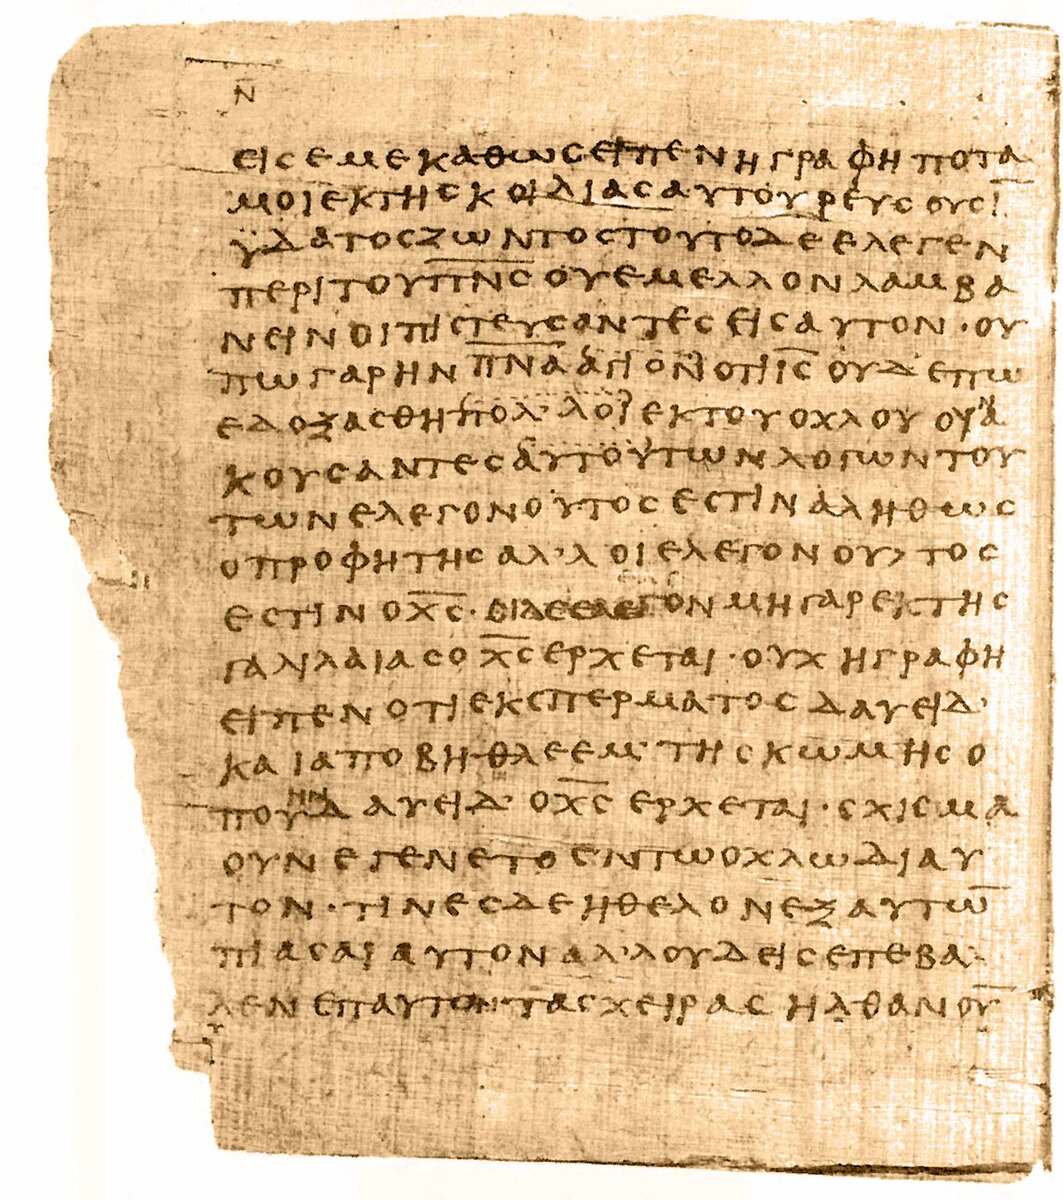 Ν̅
ΕΙϹΕΜΕΚΑΘΩϹΕΙΠΕΝΗΓΡΑΦΗΠΟΤΑ
ΜΟΙΕΚΤΗϹΚΟΙΛΙΑϹΑΥΤΟΥΡΕΥϹΟΥϹΙ̅
ΫΔΑΤΟϹΖΩΝΤΟϹΤΟΥΤΟΔΕΕΛΕΓΕΝ
ΠΕΡΙΤΟΥΠ̅Ν̅Ϲ̅ΟΥΕΜΕΛΛΟΝΛΑΜΒΑ
ΝΕΙΝΟΙΠΙϹΤΕΥϹΑΝΤΕϹΕΙϹΑΥΤΟΝ·ΟΥ
ΠΩΓΑΡΗΝΠ̅Ν̅Α̅ΑΓΙΟΝΟΤΙΙ̅Ϲ̅ΟΥΔΕΠΩ
ΕΔΟΞΑϹΘΗΠΟΛ·ΛΟΙΕΚΤΟΥΟΧΛΟΥΟΥΝΑ
ΚΟΥϹΑΝΤΕϹΑΥΤΟΥΤΩΝΛΟΓΩΝΤΟΥ
ΤΩΝΕΛΕΓΟΝΟΥΤΟϹΕϹΤΙΝΑΛΗΘΩϹ
ΟΠΡΟΦΗΤΗϹΑΛ·ΛΟΙΕΛΕΓΟΝΟΥ›ΤΟϹ
ΕϹΤΙΝΟΧ̅Ϲ̅·ΟΙΔΕΕΛΕΓΟΝΜΗΓΑΡΕΚΤΗϹ
ΓΑΛΙΛΑΙΑϹΟΧ̅Ϲ̅ΕΡΧΕΤΑΙ·ΟΥΧΗΓΡΑΦΗ
ΕΙΠΕΝΟΤΙΕΚϹΠΕΡΜΑΤΟϹΔΑΥΕΙΔ·
ΚΑΙΑΠΟΒΗΘΛΕΕΜ·ΤΗϹΚΩΜΗϹΟ
ΠΟΥΗΝΔΑΥΕΙΔ·ΟΧ̅Ϲ̅ΕΡΧΕΤΑΙ·ϹΧΙϹΜΑ
ΟΥΝΕΓΕΝΕΤΟΕΝΤΩΟΧΛΩΔΙΑΥ
ΤΟΝ·ΤΙΝΕϹΔΕΗΘΕΛΟΝΕΞΑΥΤΩ̅
ΠΙΑϹΑΙΑΥΤΟΝΑΛ·ΛΟΥΔΕΙϹΕΠΕΒΑ·
ΛΕΝΕΠΑΥΤΟΝ·ΤΑϹΧΕΙΡΑϹΗΛΘΑΝΟΥ̅